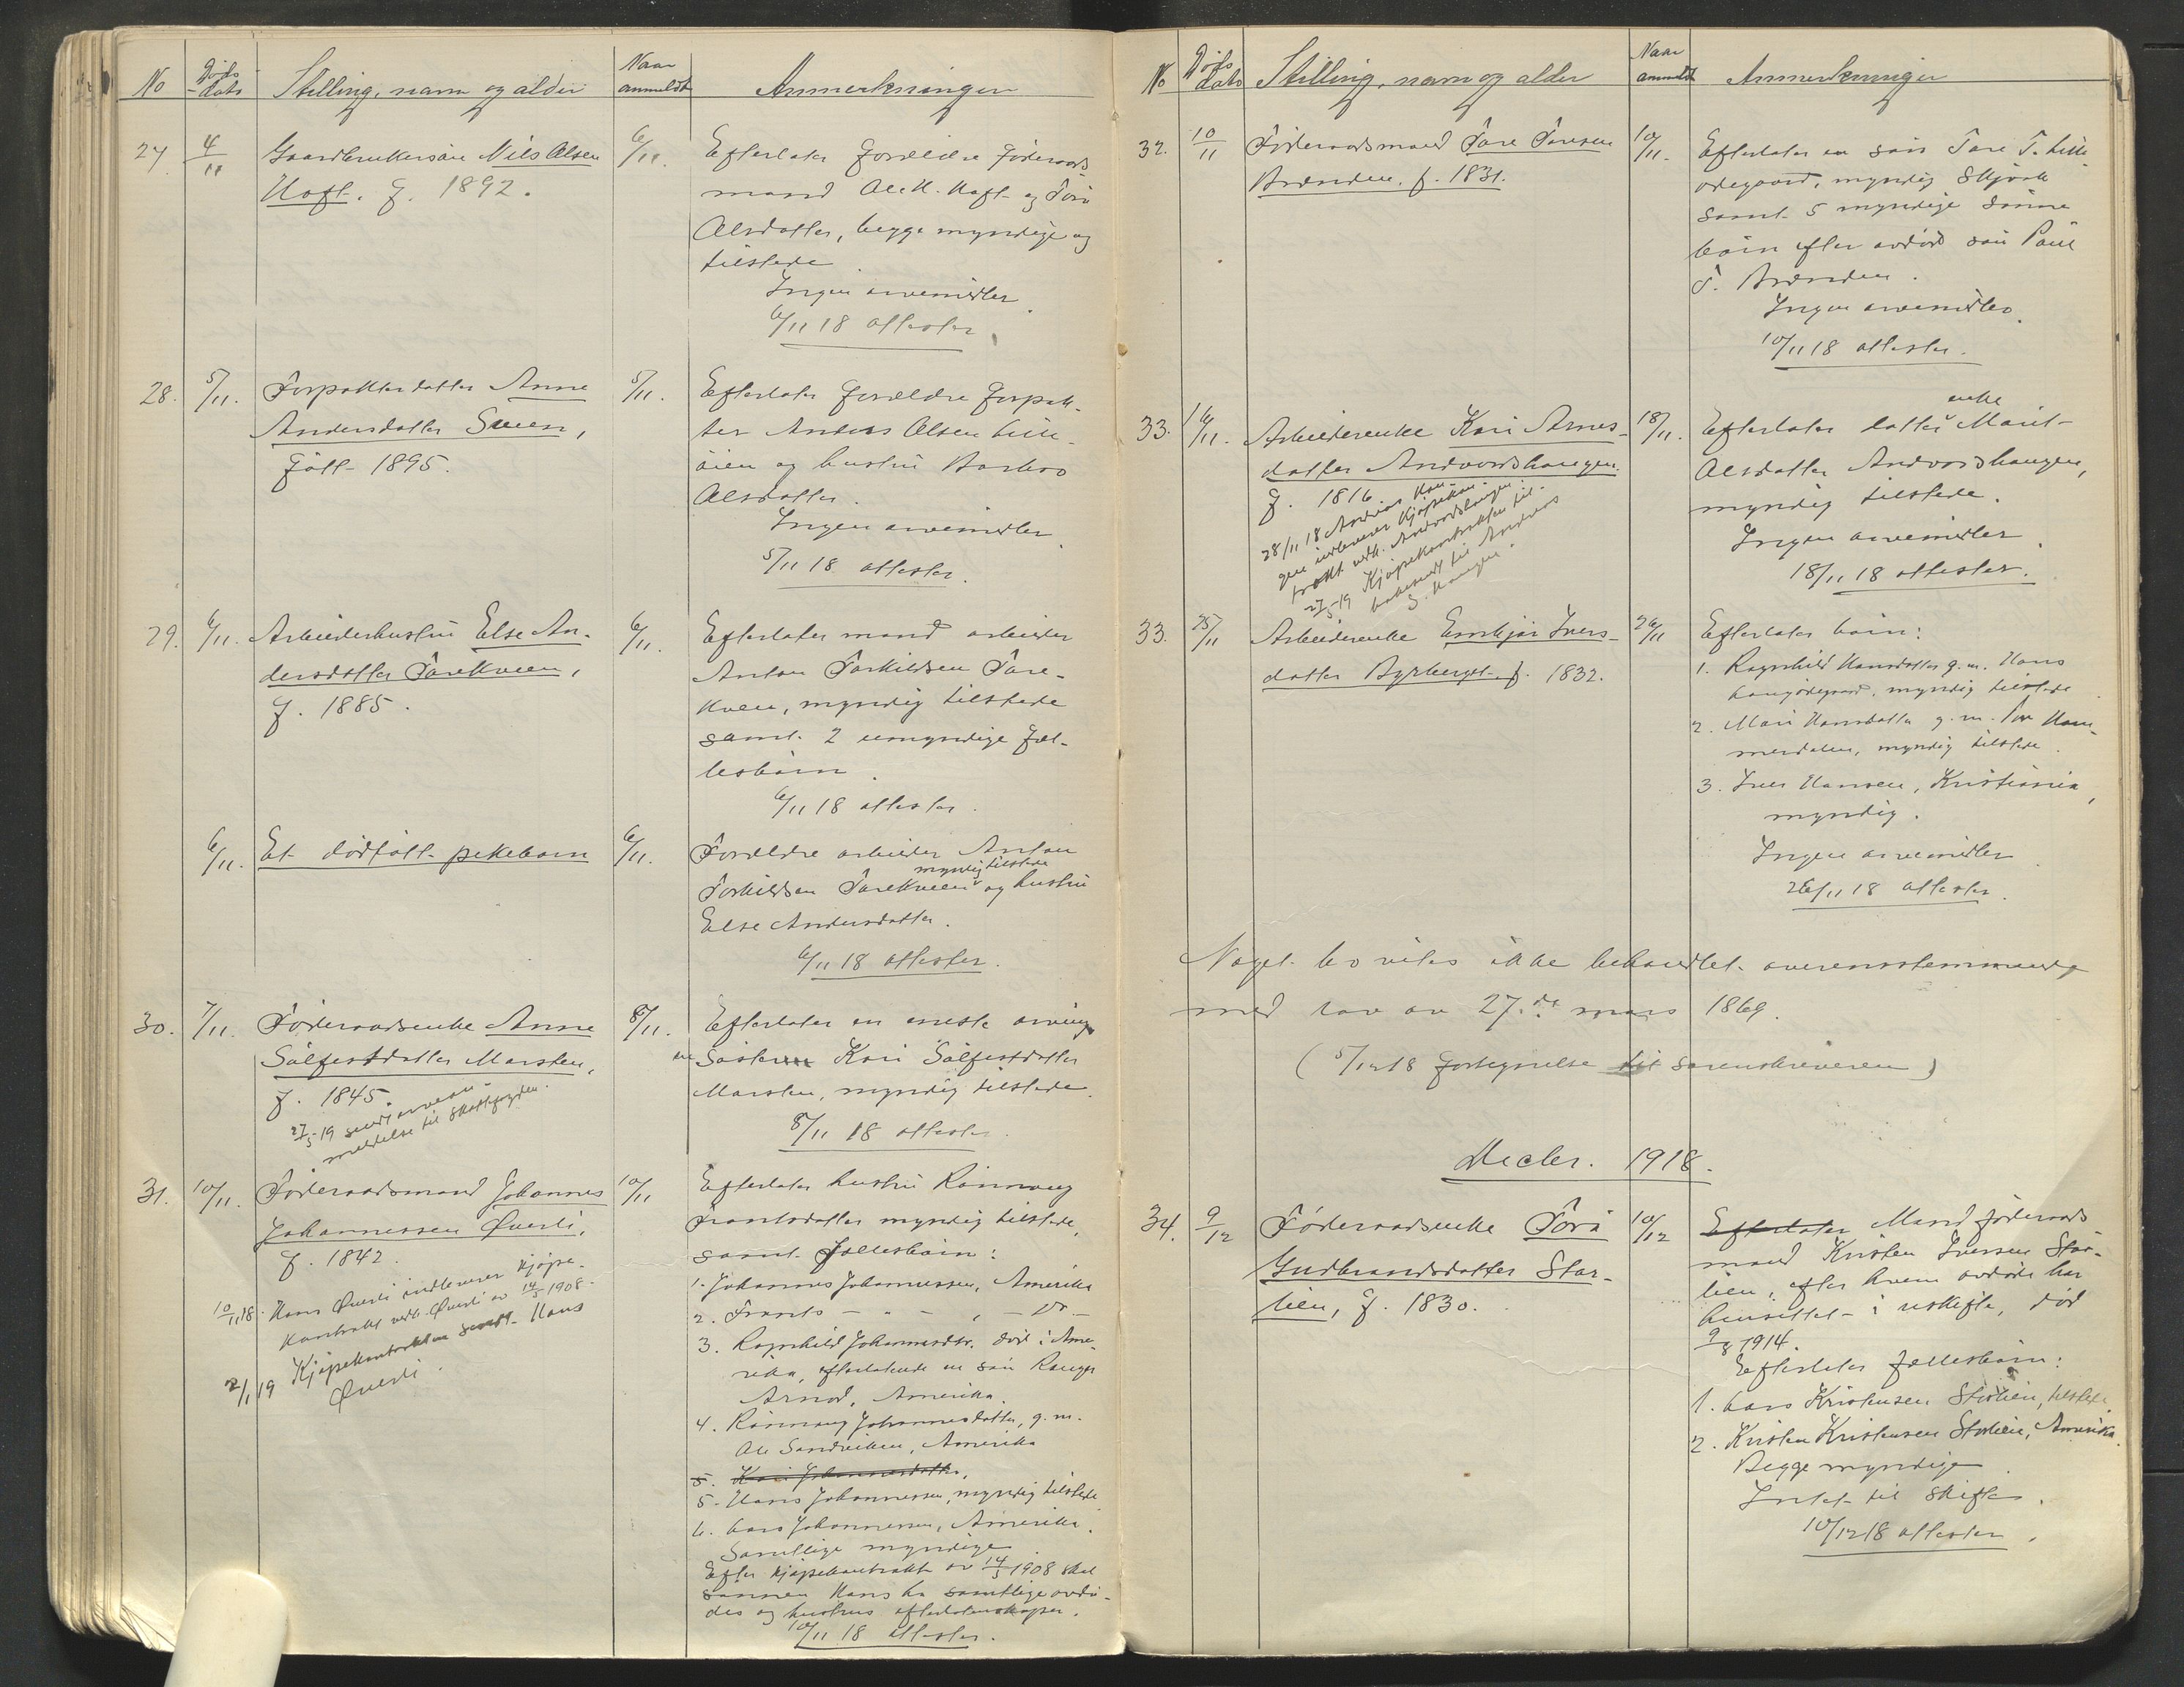 No Døds dato Stilling, navn og alder Naar anmeldt Anmerkninger
27 4/11 Gaardbrukersøn Nils Olsen 6/11. Efterlater forældre føderaads
Hoft. f. 1892. mand Ole N. Hoft og Torø
Olsdatter, begge myndige og
tilstede.
Ingen arvemidler.
6/11 18 attester.
28. 5/11. Forpakterdatter Anne 5/11. Efterlater forældre forpak-
Andersdatter Sveen, ter Anders Olsen Lille-
født 1895. øien og hustru Barbro
Olsdatter.
Ingen arvemidler.
5/11 18 attester.
29. 6/11. Arbeiderhustru Else An- 6/11. Efterlater mand arbeider
dersdatter Torekveen, Anton Torkildsen Tore-
f. 1885. kveen, myndig tilstede
samt 2 umyndige fæl-
lesbørn.
6/11 18 attester.
6/11. Et dødfødt pikebarn 6/11. Forældre arbeider Anton
myndig tilstede
Torkildsen Torekveen og hustru
Else Andersdatter.
6/11 18 attester.
30. 7/11. Føderaadsenke Anne 8/11. Efterlater en eneste arving
Sølfestdatter Marsten, en søster Kari Sølfestdatter
f. 1845. Marsten, myndig tilstede.
27/5-19 sendt arvean-
meldelse til skattefogden.
8/11 18 attester.
31. 10/11. Føderaadsmand Johannes 10/11 Efterlater hustru Rønnaug
Johannessen Øverli, Frantsdatter myndig tilstede,
f. 1842. samt fællesbørn:
10/11 18. Hans Øverli indleverer kjøpe-
kontrakt vedk. Øverli av 14/5 1908.
2/1 19 Kjøpekontrakten sendt Hans
Øverli.
1. Johannes Johannessen, Amerika
2. Frants - " - , - do -
3. Ragnhild Johannesdtr. død i Ame-
rika, efterlatende en søn
Arnod, Amerika.
4. Rønnaug Johannesdatter, g. m.
Ole Sandviken, Amerika
5. Kari Johannesdatter,
5. Hans Johannessen, myndig tilstede
6. Lars Johannessen, Amerika.
Samtlige myndige.
Efter kjøpekontrakt av 14/5 1908 skal
sønnen Hans ha samtlige avdø-
des og hustrus efterlatenskaper.
10/11 18 attester.
No Døds dato Stilling, navn og alder Naar anmeldt Anmerkninger
32. 10/11 Føderaadsmand Tore Toresen 10/11. Efterlater en søn Tore T. Lille
Brænden, f. 1831. ødegaard, myndig Skjåk
samt 5 myndige sønne
børn efter avdød søn Paul
T. Brænden.
Ingen arvemidler.
10/11 18 attester.
33. 16/11. Arbeiderenke Kari Arnes- 18/11. Efterlater datter enke Marit
datter Andvordshaugen Olsdatter Andvordshaugen,
f. 1816 myndig tilstede.
28/11 18 Andreas Hau-
gen indleverer kjøpekon-
trakt vedk. Andvordshaugen.
27/5-19 Kjøpekontrakten til-
bakesendt til Andreas
S. Haugen.
Ingen arvemidler.
18/11 18 attester.
33. 25/11 Arbeiderenke Emkjør Ivers- 26/11 Efterlater børn:
datter Byrberget f. 1832. 1. Ragnhild Hansdatter g. m. Hans
Haugødegaard, myndig tilstede.
2. Mari Hansdatter g. m. Ham-
merdalen, myndig tilstede.
3. Iver Hansen, Kristiania,
myndig.
Ingen arvemidler
26/11 18 attester.
Noget bo vites ikke behandlet overensstemmende
med lov av 27.de mars 1869.
(5/12 18 fortegnelse til sorenskriveren)
Decbr. 1918.
34. 9/12 Føderaadsenke Torø 10/12 Efterlater Mand føderaads
Gudbrandsdatter Stor- mand Kristen Iversen Stor-
lien, f. 1830. lien, efter hvem avdøde har
hensittet i uskifte, død
9/8 1914.
Efterlater fællesbørn:
1. Lars Kristensen Storlien, tilstede
2. Kristen Kristensen Storlien, Amerika.
Begge myndige.
Intet til skifte.
10/12 18 attester.